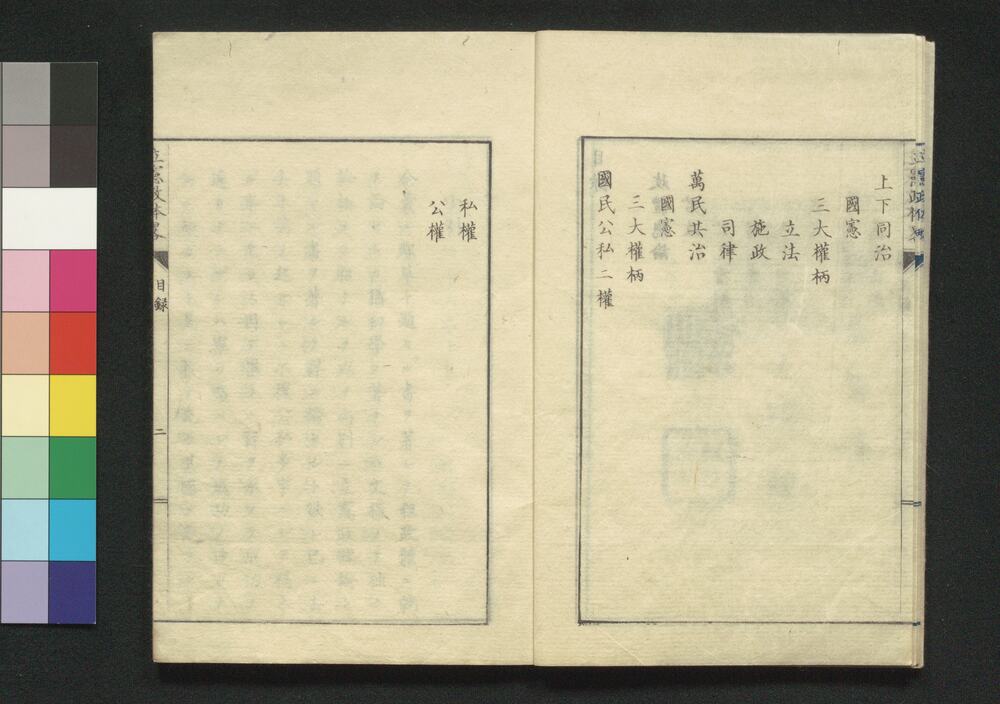 上下同治
國憲
三大權柄
立法
施政
司律
萬民共治
國憲
三大權柄
國民公私二權
私權
公權
立憲政体略
目録
二